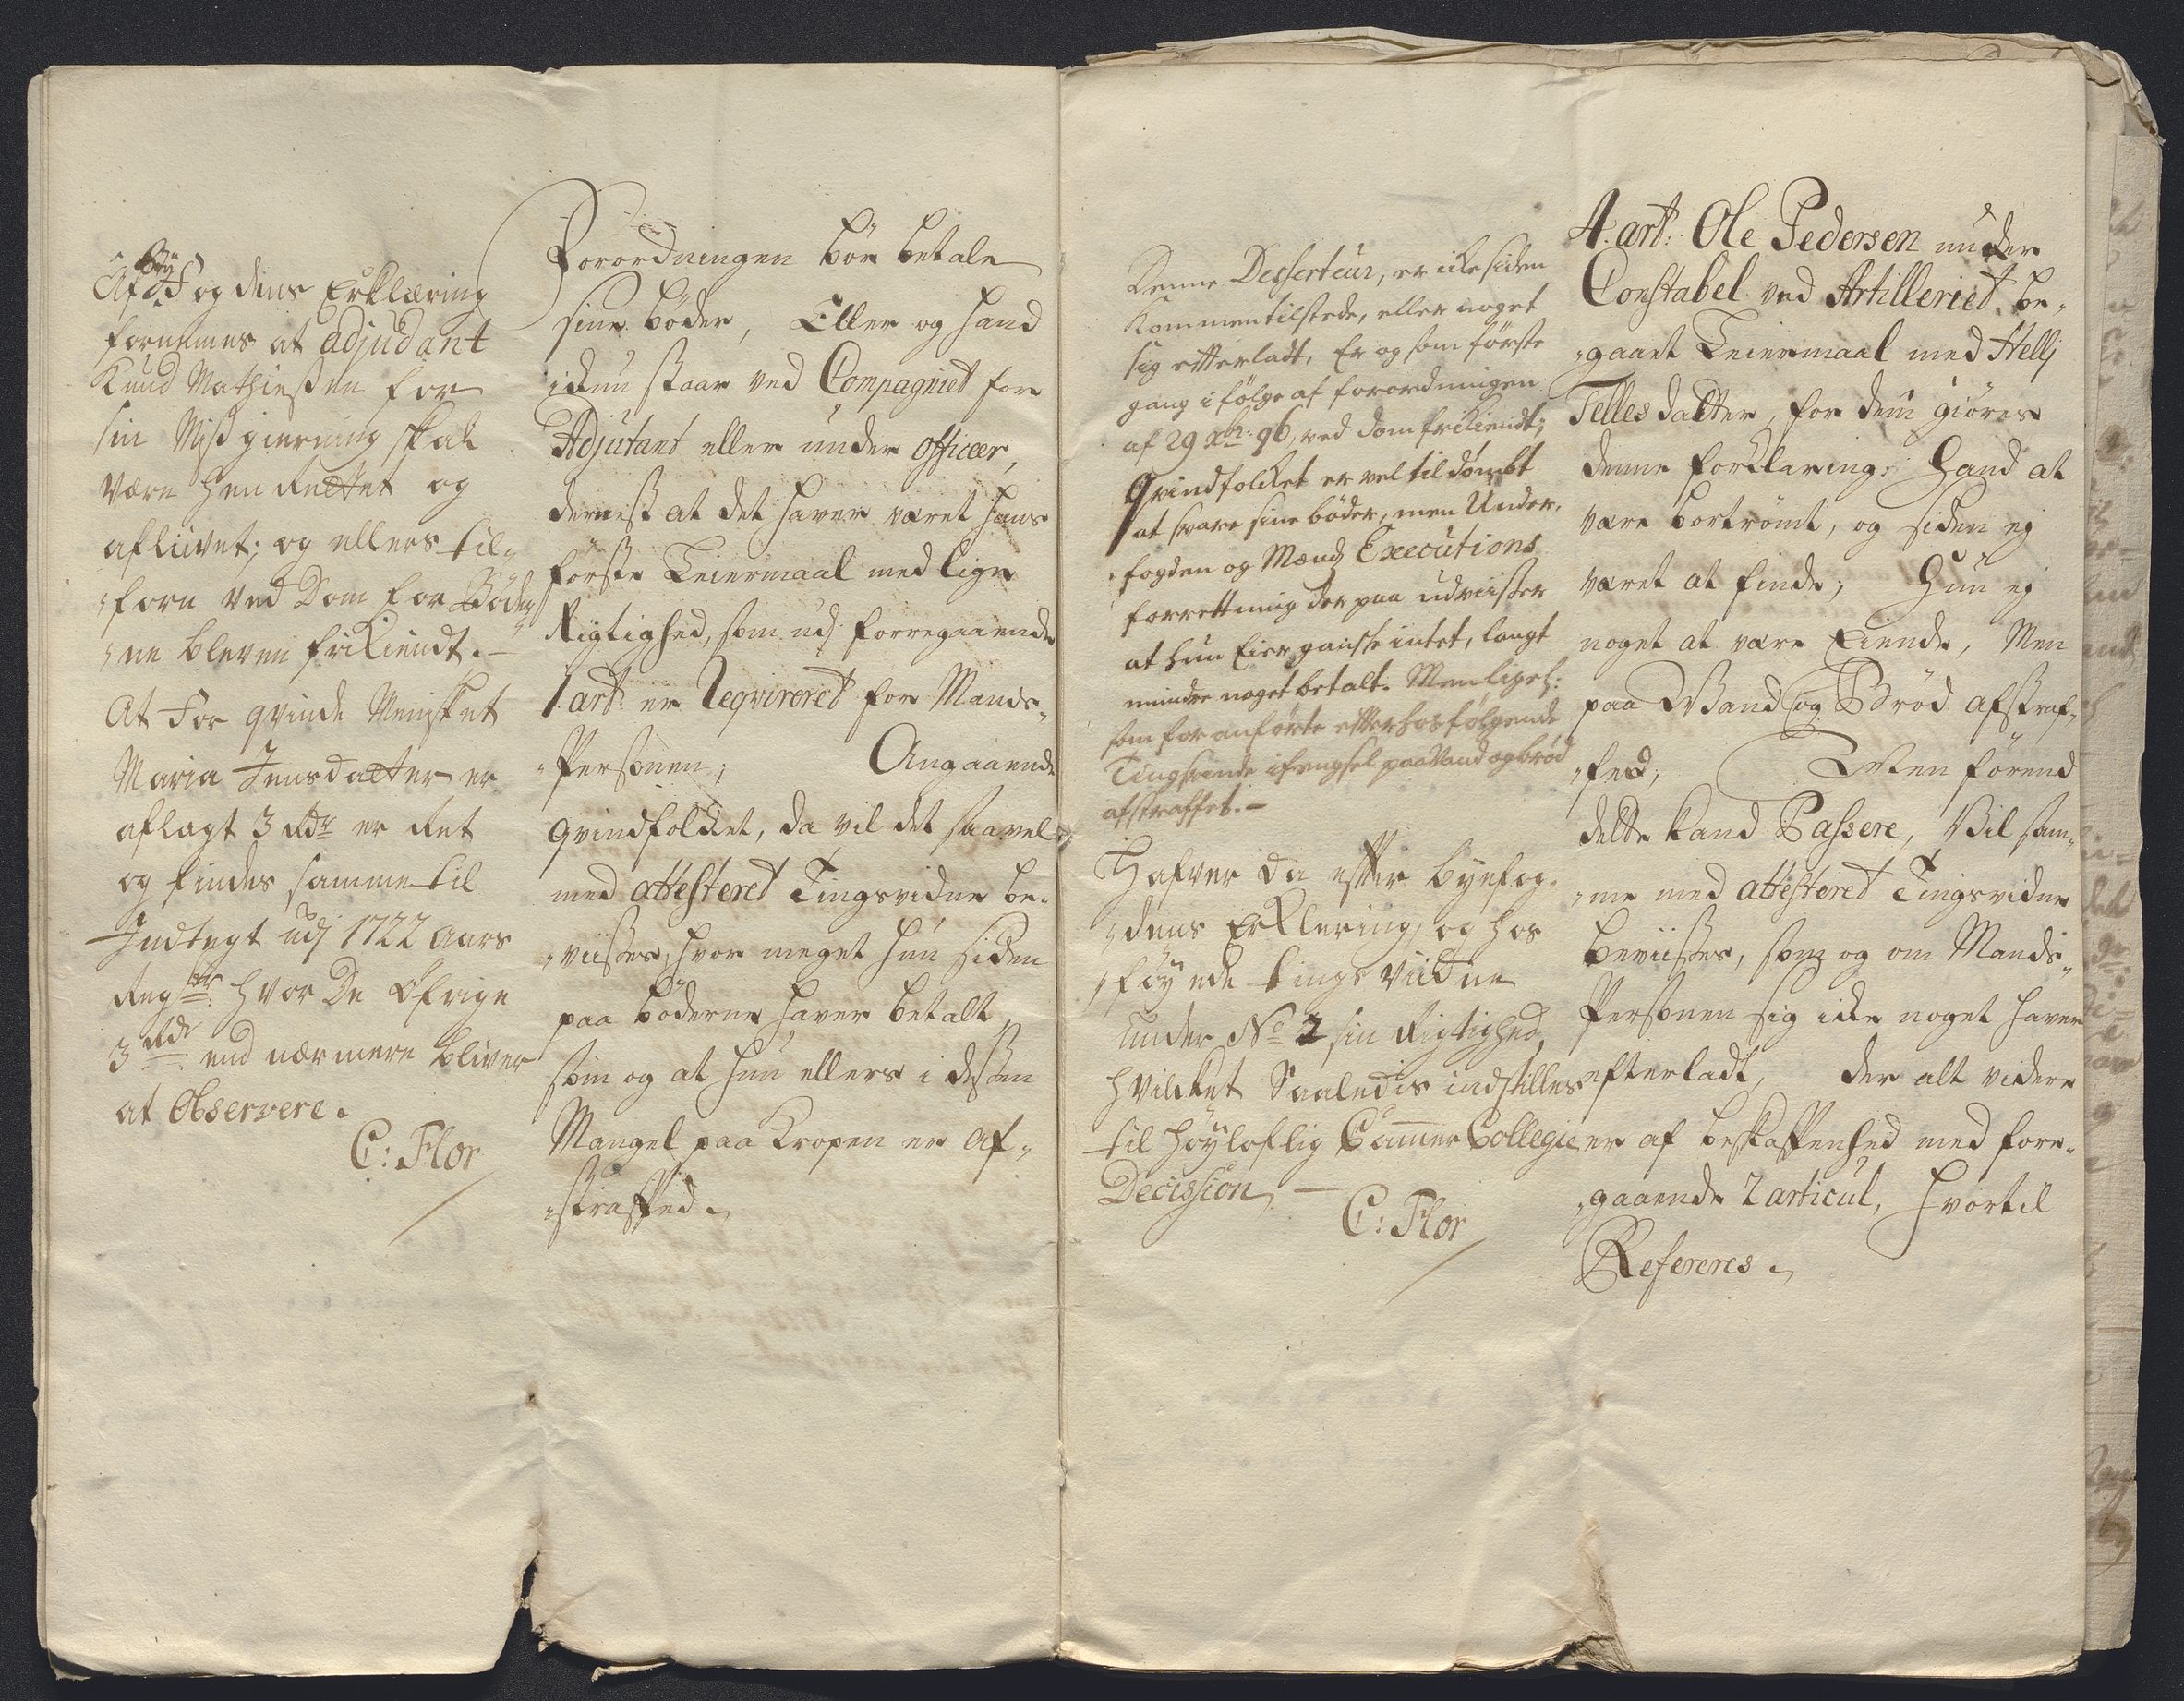 Af Byf: og dens Erklæring
fornemmes at adjudant
Knud Mathiessen for
sin Missgierning skal
være hen Rettet og
aflivet; og ellers til„
„forn ved Dom for Böder„
„ne bleven friKiendt.—
At For qvinde Mennisket
Maria Jensdatter er
aflagt 3 Rdr er Ret
og findes samme til
Indtegt udj 1722 Aars
Regsk: hvor De Öfrige
3 Rdr end nærmere bliver
at Observere.
C: Flor
Forordningen bör betale
sine böder, Eller og hand
idun staar ved Compagniet for
Adjutant eller under officeer,
dernest at det haver været hans
förste Leiermaal med lige
Rigtighed, som udj forregaaende
1. art: er Reqvireret for Mands„
„Personen; Angaaende
qvindfolcket, da vil det saavel
med attesteret Tingsvidne be„
„viises, hvor meget hun siden
paa böderne haver betalt
som og at hun ellers i dessen
Mangel paa Kropen er af„
„straffed.
Denne Desserteur, er icke siden
Kommen tilstede, eller noget
sig efterladt, Er og som förste
gang i fölge af forordningen
af 29 Xbr: 96, ved dom friKiendt;
Qvindfolcket er vel tildömbt
at svare sine böder, men Under„
fogden og Mænds Executions
forrettning der paa udviiser
at hun Eier gandske intet, langt
mindre noget betalt. Men ligel:
som for anförte efter hosfölgende
Tingsvinde i fengsel paa Vand og bröd
afstraffet.—
Hafver da efter byefog„
„dens Erklering, og hos
„föyede tings vidne
under No 2 sin Rigtighed
hvilcket Saaledis indstilles
til höyloflig Cammer Collegie
Decission,—
C: Flor
4. art: Ole Pedersen under
Constabel ved Artilleriet, be„
„gaaet Leiermaal med Hellj
Tellesdatter, for dem giöres
denne forklaring: Hand at
være bortrömt, og siden ej
været at finde; Hun ej
noget at være Eiende, Men
paa Wand og Bröd afstraf„
„fed; Men förend
dette kand Passere, Vil sam„
„me med attesteret Tingsvidne
beviises, som og om Mands„
Personen sig icke noget haver
efterladt, der alt videre
er af beskaffenhed med fore„
„gaaende 2 articul, hvortil
Refereres.